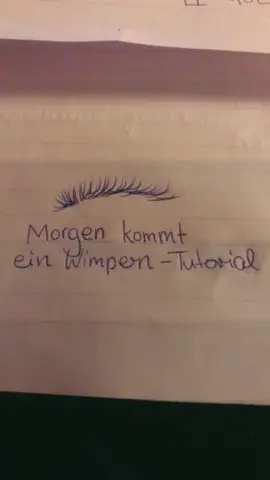 Morgen kommt
ein Wimpern-Tutorial